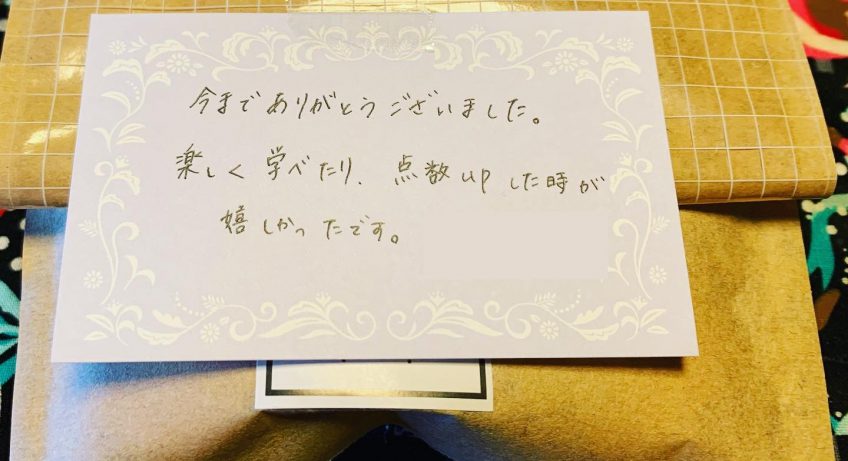 今までありがとうございました。
楽しく学べたり、点数upした時が
嬉しかったです。